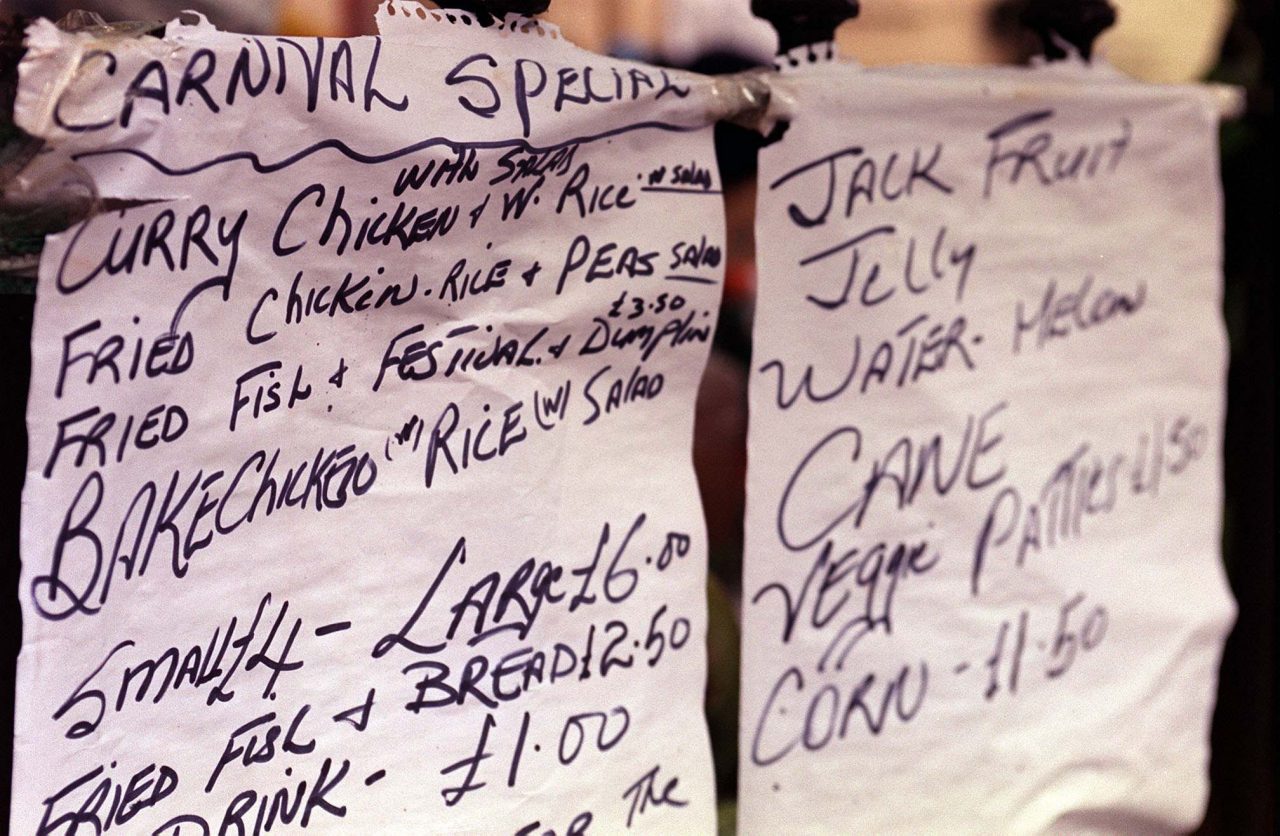 CARNIVAL SPECIAL
WITH SALAD
CURRY CHICKEN & W. RICE W SALAD
FRIED CHICKEN. RICE & PEAS SALAD
£3.50
FRIED FISH & FESTIVAL & DUMPLIN
BAKE CHICKEN (W) RICE (W) SALAD
SMALL £4 - LARGE £6.00
FRIED FISH & BREAD £2.50
DRINK - £1.00
FOR THE
JACK FRUIT
JELLY
WATER-MELON
CANE
VEGGIE PATTIES £1.50
CORN - £1.50